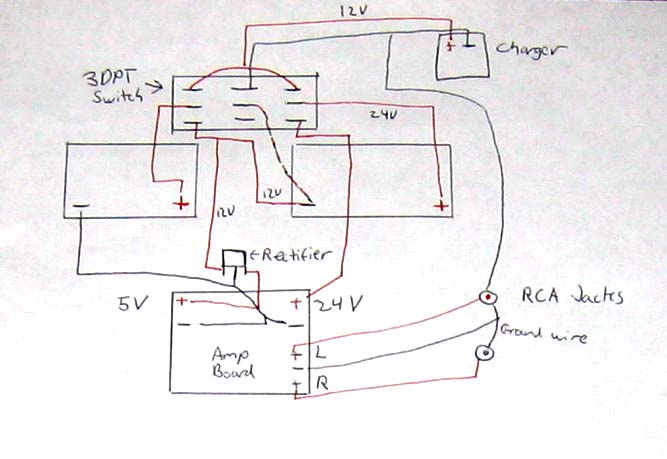 12V
+ -
Charger
3DPT
Switch
24V
- +
12V
- +
12V
←Rectifier
5V
+ +
24V
- -
RCA Jacks
Ground wire
Amp
Board
+ L
-
+ R